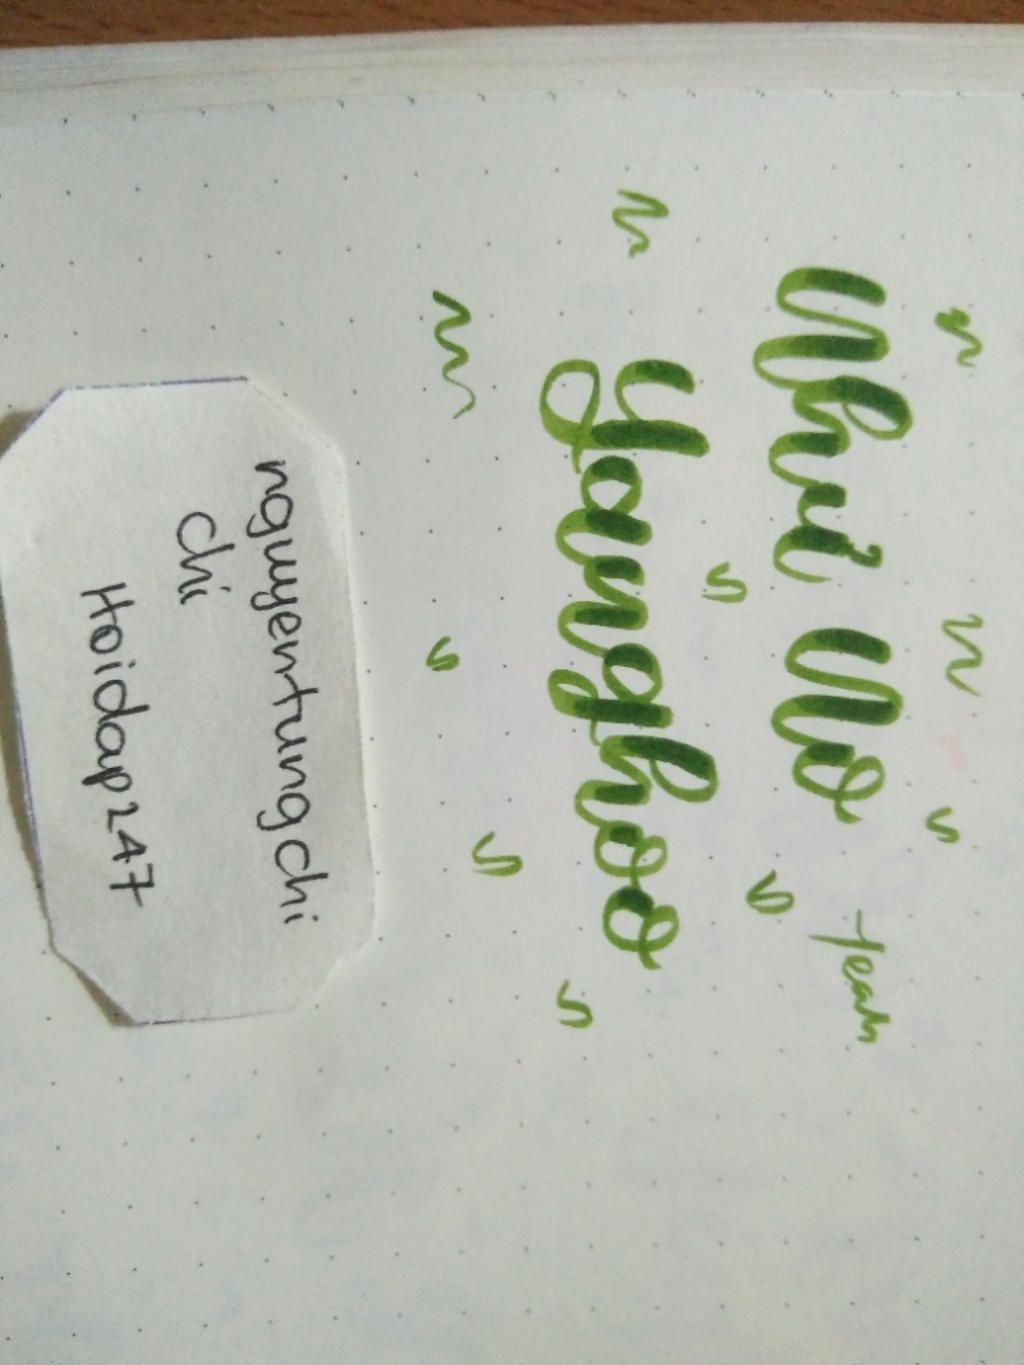 Nhi No
team
Yanghoo
nguyentungchi
chi
Hoidap247